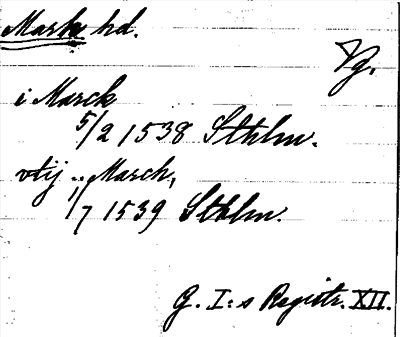 Mark hd.
Vg.
i Marck
5/2 1538 Sthlm.
vtij .. March,
1/7 1539 Sthlm.
G. I:s Registr. XII.